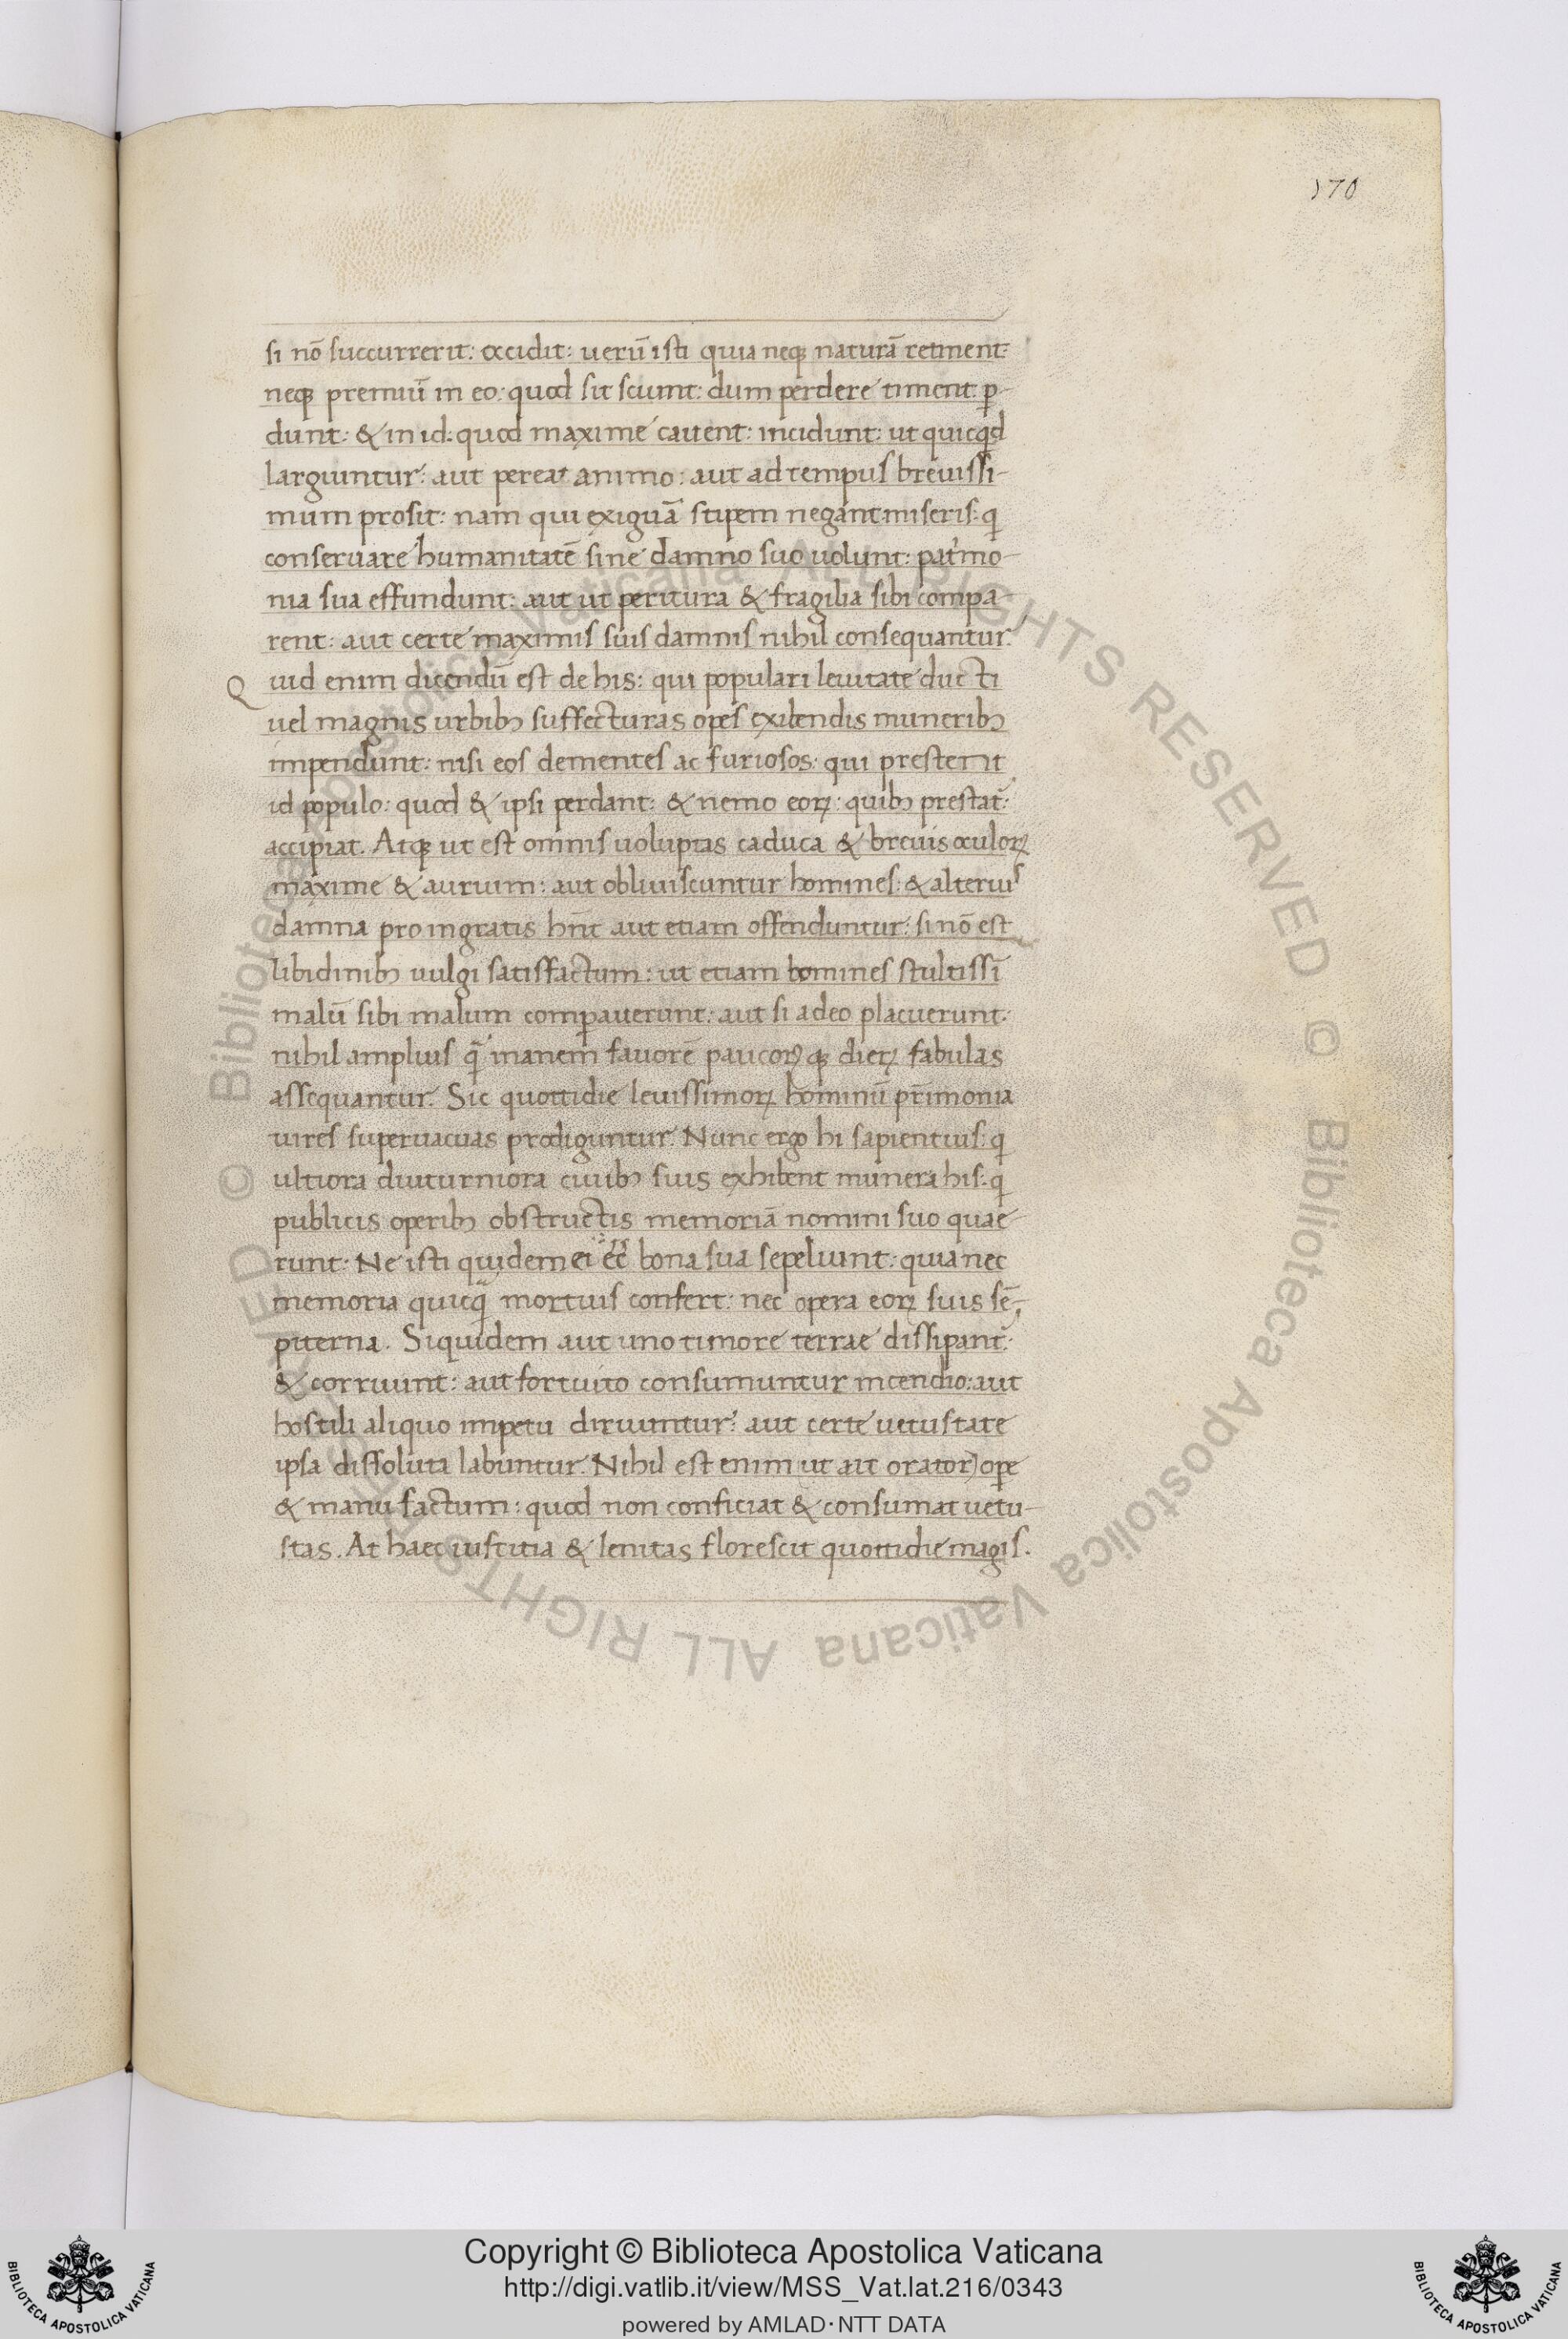 170
si nō succurrerit: occidit: uerū isti quia neqꝫ naturā retinent:
neqꝫ premiū in eo: quod sit sciunt: dum perdere timent: ꝑ-
dunt: & in id: quod maxime cauent: incidunt: ut quicqd
largiuntur: aut pereat animo: aut ad tempus breuissi-
mum prosit: nam qui exiguā stipem negant miseris: q
conseruare humanitatē sine damno suo uolunt: patrimo-
nia sua effundunt: aut ut peritura & fragilia sibi compa-
rent: aut certe maximis suis damnis nihil consequantur.
Quid enim dicendū est de his: qui populari leuitate ducti
uel magnis urbibꝫ suffecturas opes exibendis muneribꝫ
impendunt: nisi eos dementes ac furiosos: qui prestent
id populo: quod & ipsi perdant: & nemo eoꝝ: quibꝫ prestat̄:
accipiat. Atqꝫ ut est omnis uoluptas caduca & breuis oculoꝝ
maxime & aurium: aut obliuiscuntur homines: & alterius
damna pro ingratis hn̄t aut etiam offenduntur: si nō est
libidinibꝫ uulgi satisfactum: ut etiam homines stultissī
malū sibi malum comꝑauerunt: aut si adeo placuerunt:
nihil amplius q̄ inanem fauorē paucoꝝ qꝫ dieꝝ fabulas
assequantur. Sic quottidie leuissimoꝝ hominū pr̄imonia
uires superuacuas prodiguntur. Nunc ergo hi sapientius: q
ultiora diuturniora ciuibꝫ suis exhibent munera his: q
publicis operibꝫ obstructis memoriā nomini suo quae-
runt: Ne isti quidem ei ēē bona sua sepeliunt: quia nec
memoria quicq̄ mortuis confert: nec opera eoꝝ suis sē-
piterna. Siquidem aut uno timore terrae dissipant̄:
& corruunt: aut fortuito consumuntur incendio: aut
hostili aliquo impetu diruuntur: aut certe uetustate
ipsa dissoluta labuntur. Nihil est enim (ut ait orator) oꝑe
& manu factum: quod non conficiat & consumat uetu-
stas. At haec iustitia & lenitas florescit quottidie magis.
Copyright © Biblioteca Apostolica Vaticana
http://digi.vatlib.it/view/MSS_Vat.lat.216/0343
powered by AMLAD·NTT DATA